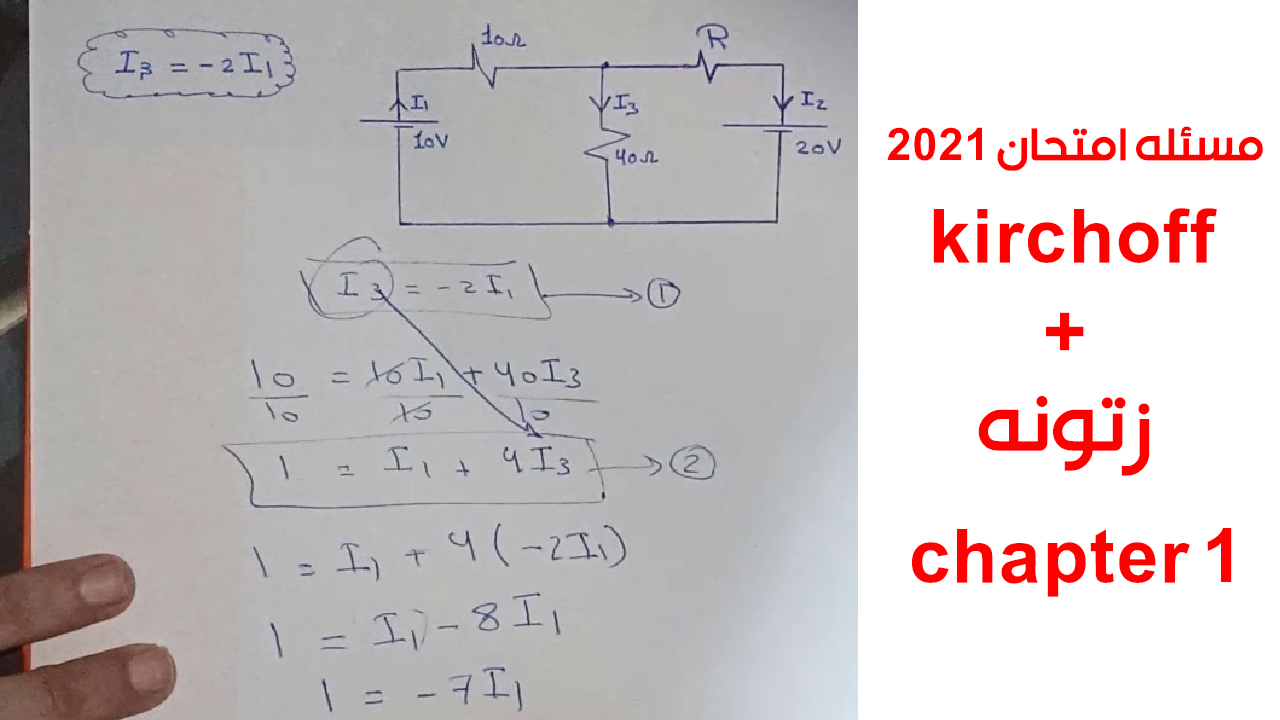 I3 = -2I1
10Ω
R
I1
I3
I2
10V
40Ω
20V
I3 = -2I1 → ①
10/10 = 10I1/10 + 40I3/10
1 = I1 + 4I3 → ②
1 = I1 + 4(-2I1)
1 = I1 - 8I1
1 = -7I1
مسئله امتحان 2021
kirchoff
+
زتونه
chapter 1